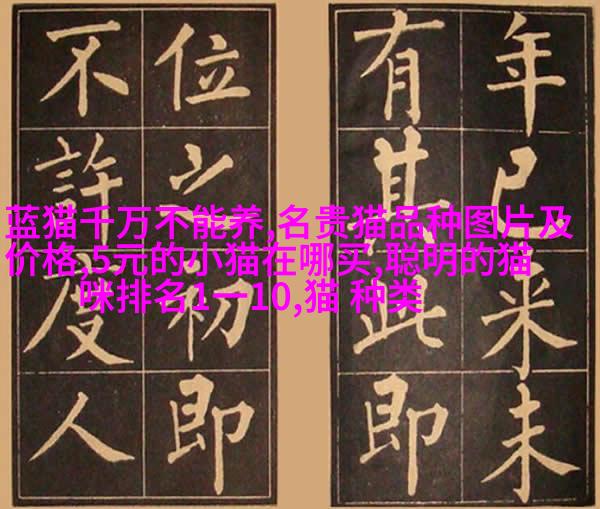 年已来未
有其比即
位之初即
不許度人
蓝猫千万不能养,名贵猫品种图片及
价格,5元的小猫在哪买,聪明的猫
咪排名1一10,猫 种类